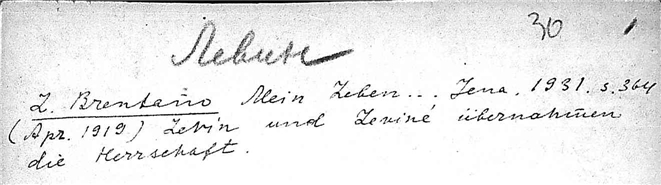 30 1
Левин
L. Brentano Mein Leben... Jena. 1931. S. 364
(Apr. 1919) Levin und Leviné übernahmen
die Herrschaft.